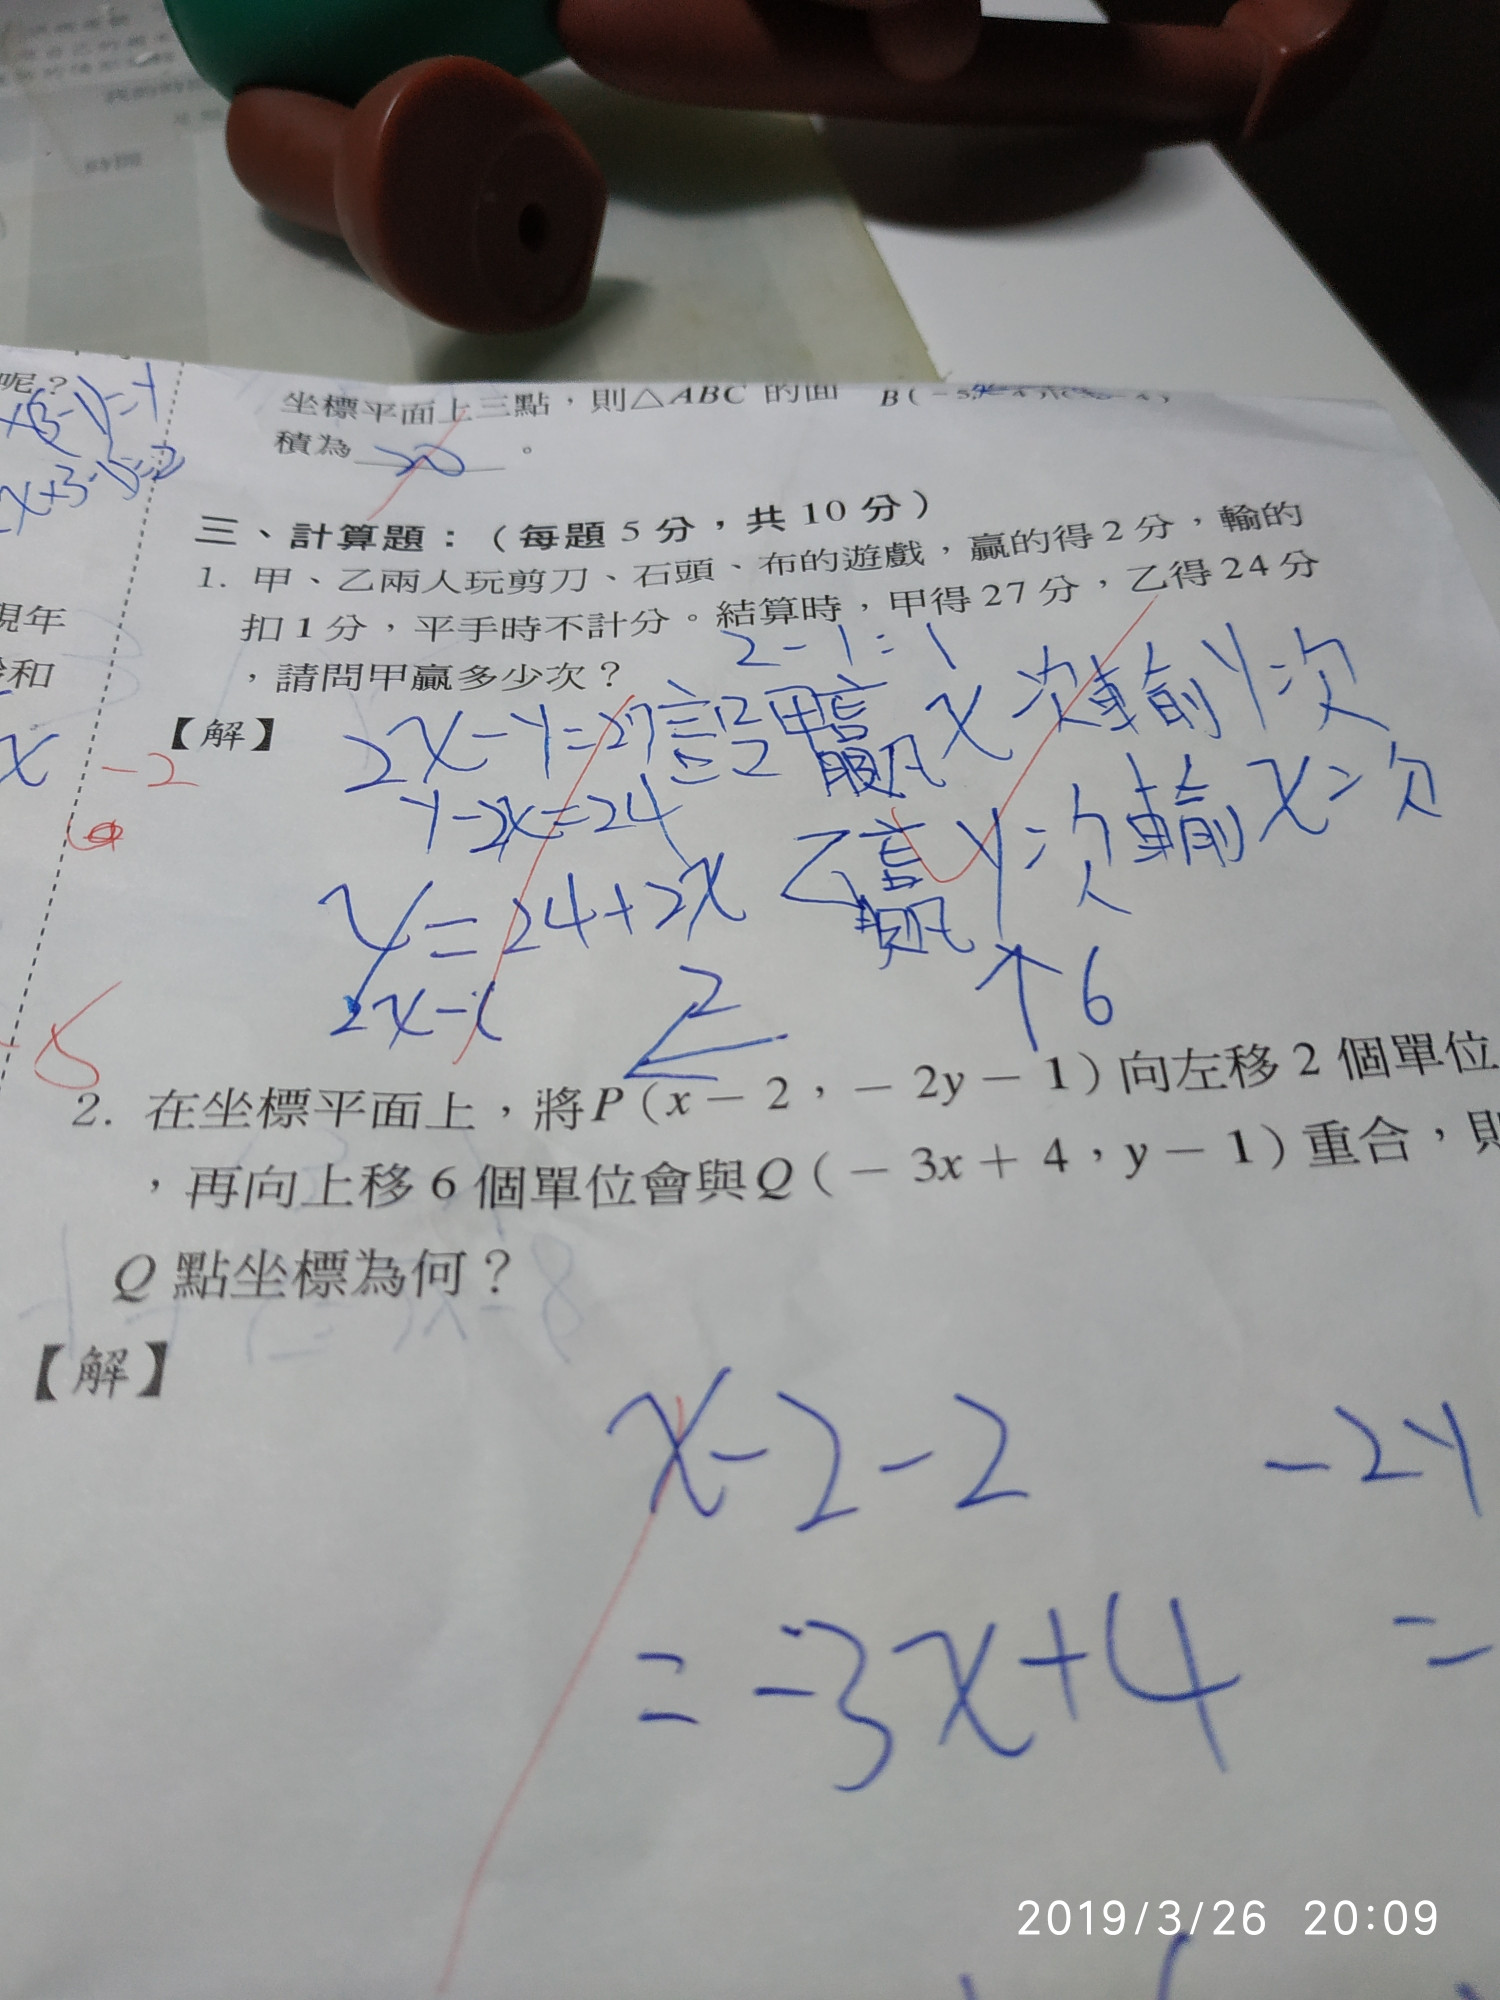 呢？
x+3-y=-1
坐標平面上三點，則△ABC 的面
積為 20 。
三、計算題：（每題 5 分，共 10 分）
1. 甲、乙兩人玩剪刀、石頭、布的遊戲，贏的得 2 分，輸的
扣 1 分，平手時不計分。結算時，甲得 27 分，乙得 24 分
，請問甲贏多少次？
2-1=1
【解】
2x-y=27 設甲贏x次輸y次
y-2x=24 乙贏y次輸x次
y=24+2x
2x-(
2
↑6
現年
和
x -2
-5
2. 在坐標平面上，將P（x－2，－2y－1）向左移 2 個單位
，再向上移 6 個單位會與Q（－3x＋4，y－1）重合，則
Q 點坐標為何？
【解】
x-2-2 -2y
=-3x+4 =
2019/3/26 20:09